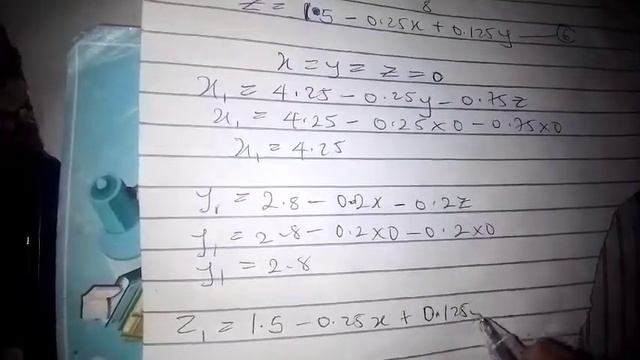 8
z = 1.5 - 0.25x + 0.125y — 6
x = y = z = 0
x₁ = 4.25 - 0.25y - 0.75z
x₁ = 4.25 - 0.25×0 - 0.75×0
x₁ = 4.25
y₁ = 2.8 - 0.2x - 0.2z
y₁ = 2.8 - 0.2×0 - 0.2×0
y₁ = 2.8
z₁ = 1.5 - 0.25x + 0.125